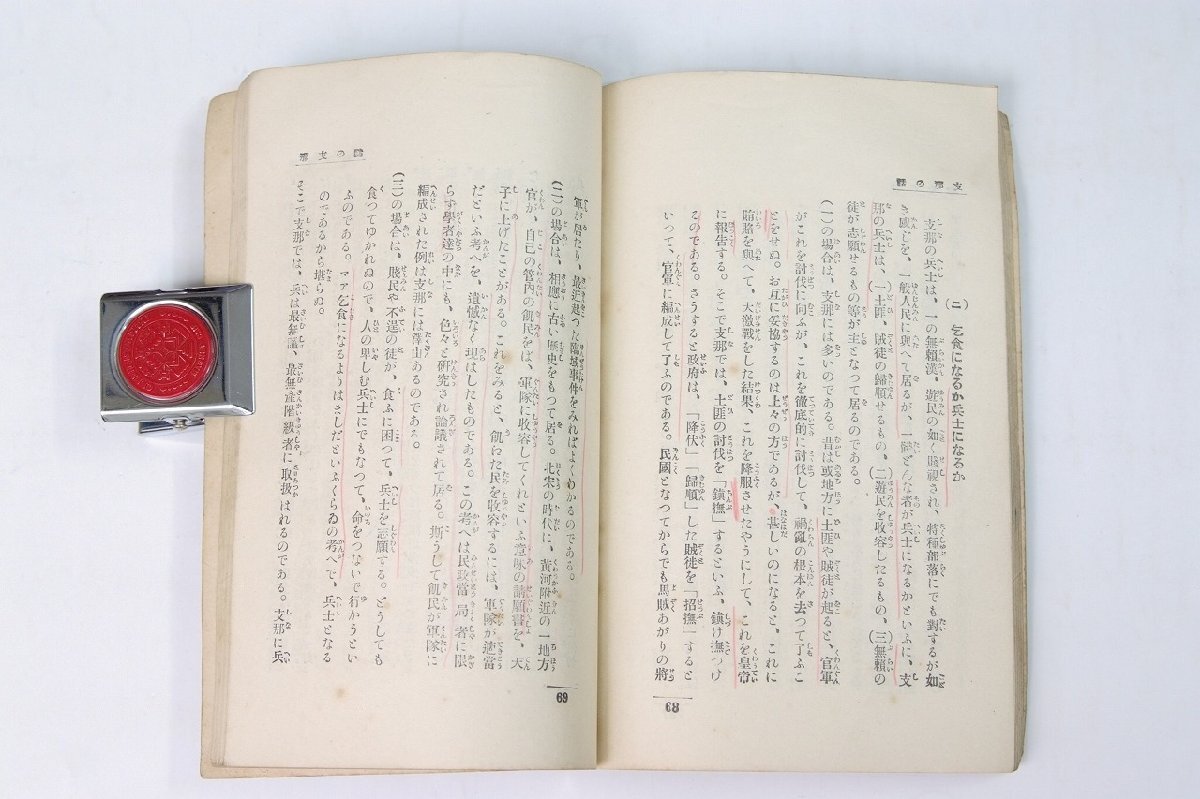 支那の話
(二) 乞食になるか兵士になるか
支那の兵士は、一の無賴漢、遊民の如く賤視され、特種部落にでも對するが如
き感じを、一般人民に與へて居るが、一體どんな者が兵士になるかといふに、支
那の兵士は、(一)土匪、賊徒の歸順せるもの、(二)遊民を收容したるもの、(三)無賴の
徒が志願せるもの等が主となつて居るのである。
(一)の場合は、支那には多いのである。昔は或地方に土匪や賊徒が起ると、官軍
がこれを討伐に向ふが、これを徹底的に討伐して、禍亂の根本を去つて了ふこ
とをせぬ。お互に妥協するのは上々の方であるが、甚しいのになると、これに
賄賂を與へて、大激戰をした結果、これを降服させたやうにして、これを皇帝
に報告する。そこで支那では、土匪の討伐を「鎭撫」するといふ、鎭け撫つけ
るのである。さうすると政府は、「降伏」「歸順」した賊徒を「招撫」すると
いつて、官軍に編成して了ふのである。民國となつてからでも馬賊あがりの將
68
話の支那
軍が居たり、最近起つた臨城事件をみればよくわかるのである。
(二)の場合は、相應に古い歷史をもつて居る。北宋の時代に、黃河附近の一地方
官が、自己の管內の飢民をば、軍隊に收容してくれといふ意味の請願書を、天
子に上げたことがある。これをみると、飢ゑた民を收容するには、軍隊が適當
だといふ考へを、遺憾なく現はしたものである。この考へは民政當局者に限
らず學者達の中にも、色々と硏究され論議されて居る。斯うして飢民が軍隊に
編成された例は支那には澤山あるのである。
(三)の場合は、賤民や不逞の徒が、食ふに困つて、兵士を志願する。どうしても
食つてゆかれぬので、人の卑しむ兵士にでもなつて、命をつないで行かうとい
ふのである。マァ乞食になるよりはましだといふくらゐの考へで、兵士となる
のであるから堪らぬ。
そこで支那では、兵は最無識、最無產階級者に取扱はれるのである。支那に兵
69